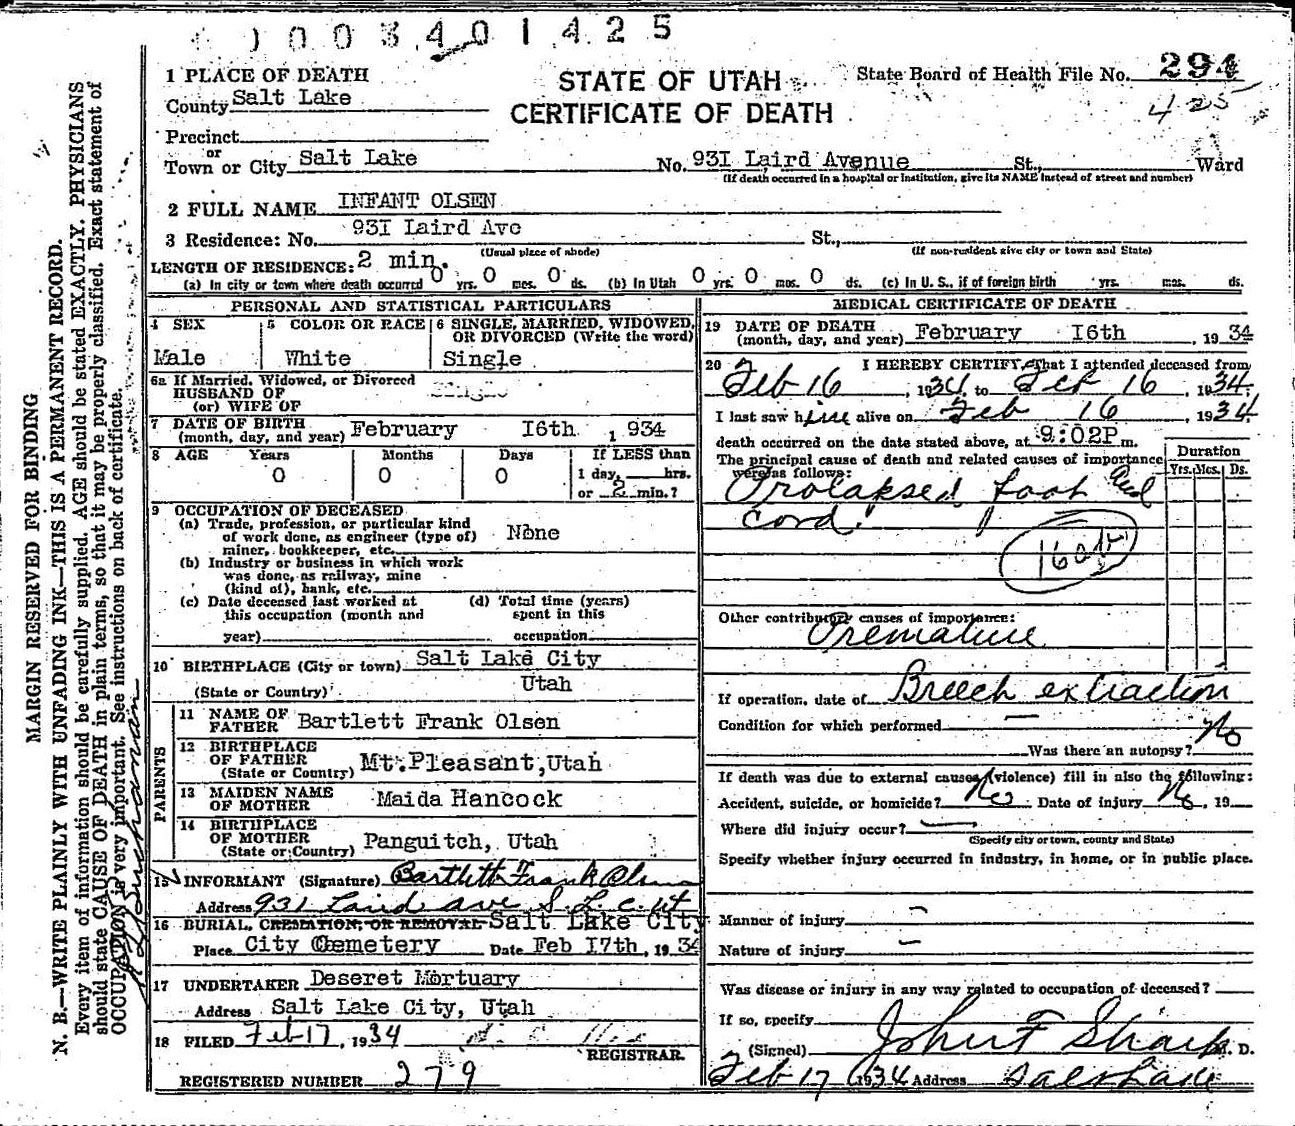 0 0 3 4 0 1 4 2 5
1 PLACE OF DEATH
County Salt Lake
Precinct
or
Town or City Salt Lake
STATE OF UTAH
CERTIFICATE OF DEATH
State Board of Health File No. 294
425
No. 931 Laird Avenue St., Ward
(If death occurred in a hospital or institution, give its NAME instead of street and number)
2 FULL NAME INFANT OLSEN
3 Residence: No. 931 Laird Ave St.,
(Usual place of abode) (If non-resident give city or town and State)
LENGTH OF RESIDENCE: 2 min.
(a) In city or town where death occurred 0 yrs. 0 mos. 0 ds. (b) In Utah 0 yrs. 0 mos. 0 ds. (c) In U. S., if of foreign birth yrs. mos. ds.
PERSONAL AND STATISTICAL PARTICULARS
4 SEX 5 COLOR OR RACE 6 SINGLE, MARRIED, WIDOWED, OR DIVORCED (Write the word)
Male White Single
6a If Married, Widowed, or Divorced
HUSBAND OF
(or) WIFE OF
Single
7 DATE OF BIRTH
(month, day, and year) February 16th 1934
8 AGE Years Months Days If LESS than
0 0 0 1 day, hrs.
or 2 min.?
9 OCCUPATION OF DECEASED
(a) Trade, profession, or particular kind
of work done, as engineer (type of)
miner, bookkeeper, etc. None
(b) Industry or business in which work
was done, as railway, mine
(kind of), bank, etc.
(c) Date deceased last worked at
this occupation (month and
year)
(d) Total time (years)
spent in this
occupation
10 BIRTHPLACE (City or town) Salt Lake City
(State or Country) Utah
PARENTS
11 NAME OF
FATHER Bartlett Frank Olsen
12 BIRTHPLACE
OF FATHER
(State or Country) Mt. Pleasant, Utah
13 MAIDEN NAME
OF MOTHER Maida Hancock
14 BIRTHPLACE
OF MOTHER
(State or Country) Panguitch, Utah
15 INFORMANT (Signature) Bartlett Frank Olsen
Address 931 Laird ave S. L. C. Ut
16 BURIAL, CREMATION, OR REMOVAL Salt Lake City
Place City Cemetery Date Feb 17th, 1934
17 UNDERTAKER Deseret Mortuary
Address Salt Lake City, Utah
18 FILED Feb 17, 1934
REGISTRAR.
REGISTERED NUMBER 279
MEDICAL CERTIFICATE OF DEATH
19 DATE OF DEATH
(month, day, and year) February 16th, 1934
20 I HEREBY CERTIFY, That I attended deceased from
Feb 16, 1934, to Feb 16, 1934.
I last saw him alive on Feb 16, 1934
death occurred on the date stated above, at 9:02P m.
The principal cause of death and related causes of importance
were as follows:
Duration
Yrs. Mos. Ds.
Prolapsed foot and
cord.
Other contributory causes of importance:
Premature
If operation, date of Breech extraction
Condition for which performed —
Was there an autopsy? No
If death was due to external causes (violence) fill in also the following:
Accident, suicide, or homicide? No Date of injury No, 19
Where did injury occur? —
(Specify city or town, county and State)
Specify whether injury occurred in industry, in home, or in public place.
Manner of injury —
Nature of injury —
Was disease or injury in any way related to occupation of deceased?
If so, specify
(Signed) John F Sharp M. D.
Feb 17 1934 Address Salt Lake
MARGIN RESERVED FOR BINDING
N. B.—WRITE PLAINLY WITH UNFADING INK—THIS IS A PERMANENT RECORD.
Every item of information should be carefully supplied. AGE should be stated EXACTLY. PHYSICIANS
should state CAUSE OF DEATH in plain terms, so that it may be properly classified. Exact statement of
OCCUPATION is very important. See instructions on back of certificate.